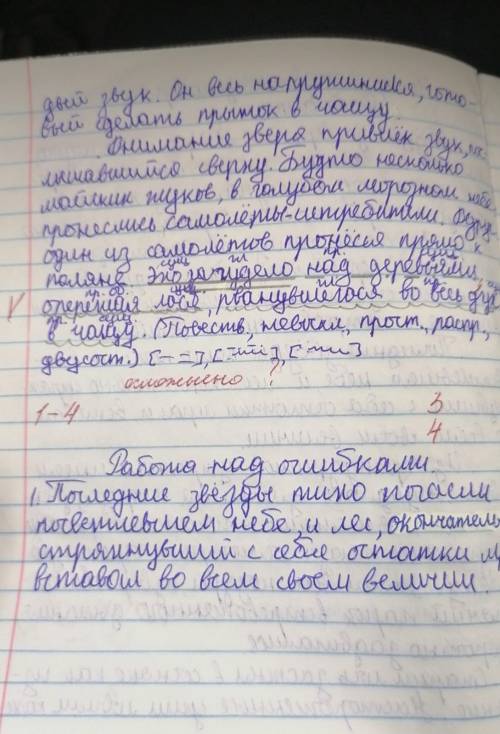 дый звук. Он весь напружинился, гото-
вый сделать прыжок в чащу.
Внимание зверя привлёк звук, пос-
лышавшийся сверху. Будто несколько
майских жуков, в голубом морозном небе
пронеслись самолёты-истребители.
один из самолётов пронёсся прямо к
поляне. Эхо загудело над деревьями,
опережая лося, рванувшегося во весь дух
в чащу. (Повеств, невыскл, прост., распр,
двусост.) [— =], [ ], [ ]
осложнено ?
1-4 3
4
Работа над ошибками.
1. Последние звёзды тихо погасли
посветлевшем небе, и лес, окончатель
стряхнувший с себя остатки
вставал во всем своем величии.